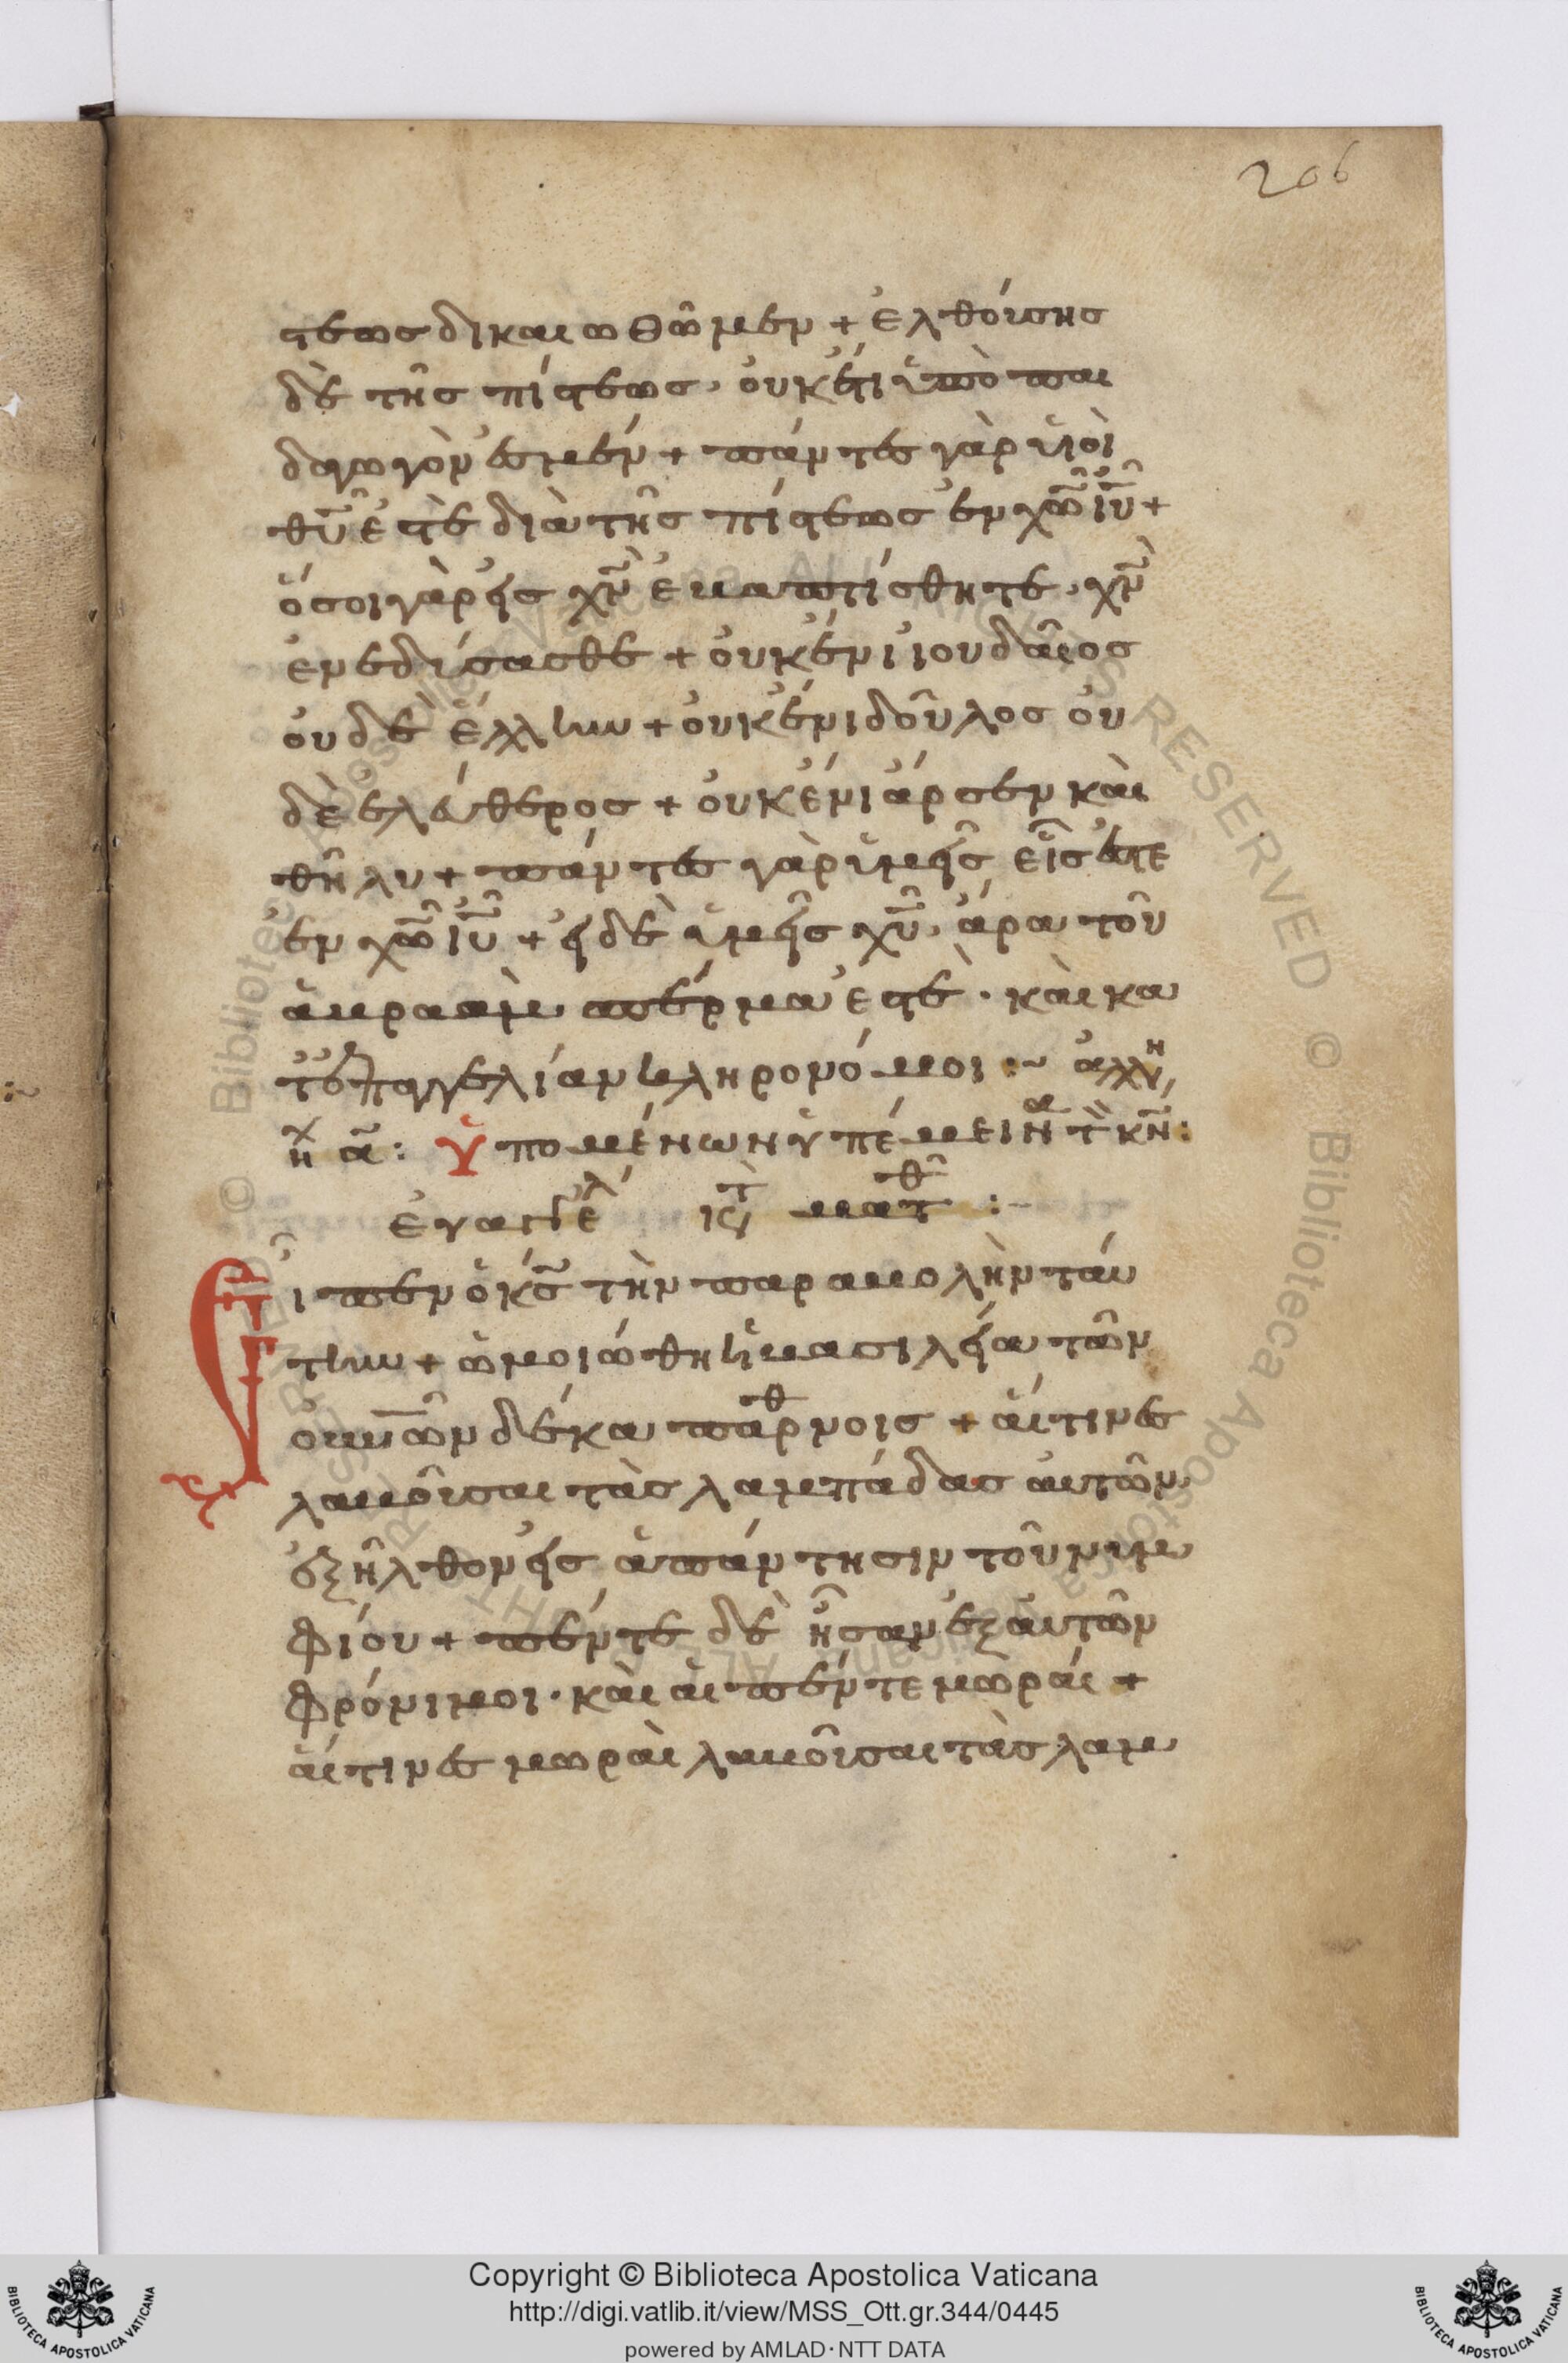 206
στεως δικαιωθῶμεν + ἐλθούσης
δὲ τῆς πίστεως, οὐκέτι ὑπὸ παι
δαγωγόν ἐσμέν + πάντες γὰρ υἱοὶ
θῦ ἐστὲ διὰ τῆς πίστεως ἐν χῶ ιῦ +
ὅσοι γὰρ εἰς χν̄ ἐβαπτίσθητε, χν̄
ἐνεδύσασθε + οὐκ ἔνι ἰουδαῖος
οὐδὲ ἕλλην + οὐκ ἔνι δοῦλος οὐ
δὲ ἐλεύθερος + οὐκ ἔνι ἄρσεν καὶ
θῆλυ + πάντες γὰρ ὑμεῖς εἷς ἐστε
ἐν χῶ ιῦ + εἰ δὲ ὑμεῖς χῦ, ἄρα τοῦ
ἀβραὰμ σπέρμα ἐστὲ · καὶ κα
τ' ἐπαγγελίαν κληρονόμοι :~ ἀλλη
ἠχ α: Ὑπομένων ὑπέμεινα τ κν:
ἐυαγγελ ἐκ τ ματθ :~
Εἶπεν ὁ κς τὴν παραβολὴν ταύ
την + ὡμοιώθη ἡ βασιλεία τῶν
οὐνῶν δέκα παρθνοις + αἵτινες
λαβοῦσαι τὰς λαμπάδας αὐτῶν
ἐξῆλθον εἰς ἀπάντησιν τοῦ νυμ
φίου + πέντε δὲ ἦσαν ἐξ αὐτῶν
φρόνιμοι · καὶ αἱ πέντε μωραί +
αἵτινες μωραὶ λαβοῦσαι τὰς λαμ
Copyright © Biblioteca Apostolica Vaticana
http://digi.vatlib.it/view/MSS_Ott.gr.344/0445
powered by AMLAD · NTT DATA